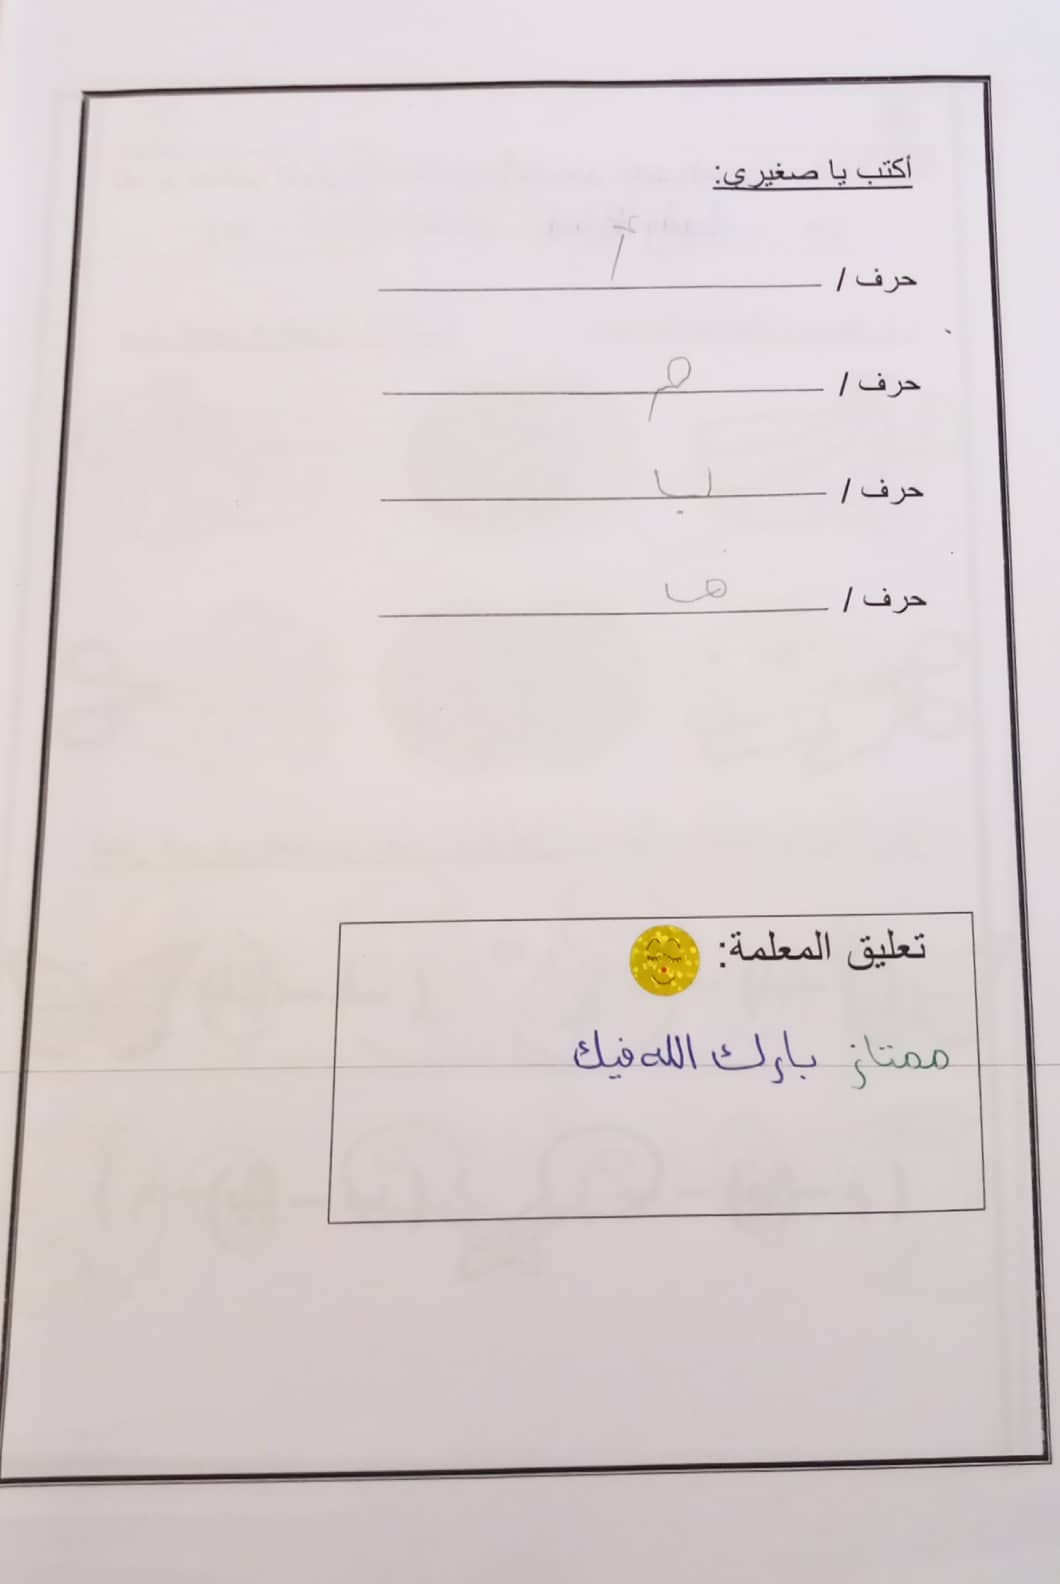 أكتب يا صغيري:
حرف / أ
حرف / م
حرف / ب
حرف /
تعليق المعلمة:
ممتاز بارك الله فيك